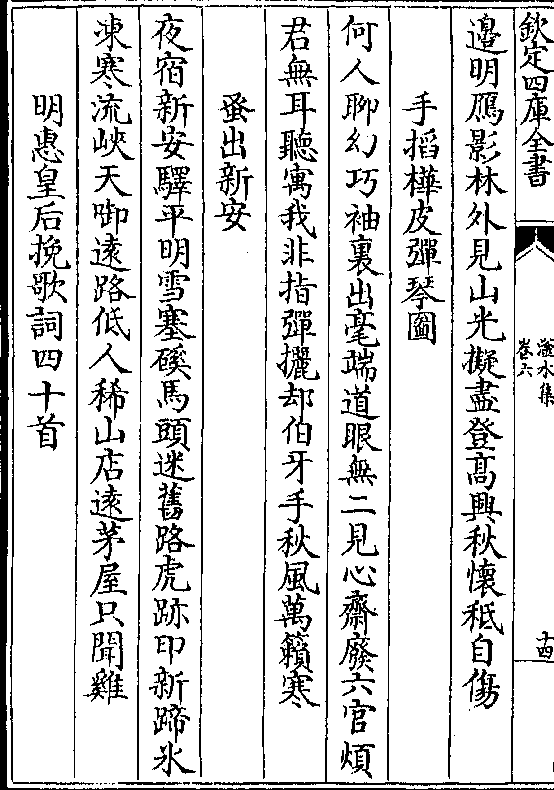 欽定四庫全書
滏水集
卷六
十四
邉明鴈影林外見山光擬盡登髙興秋懷秪自傷
手搯樺皮彈琴圖
何人聊幻巧袖裏出毫端道眼無二見心齋廢六官煩
君無耳聽寓我非指彈擺却伯牙手秋風萬籟寒
蚤出新安
夜宿新安驛平明雪塞磎馬頭迷舊路虎跡印新蹄氷
凍寒流峽天㘅逺路低人稀山店逺茅屋只聞雞
明惠皇后挽歌詞四十首